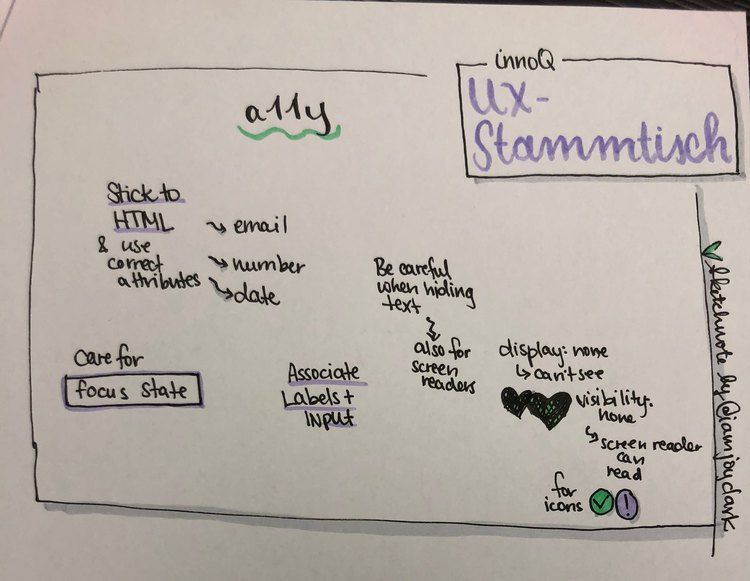 innoQ
UX-
Stammtisch
a11y
Stick to
HTML
& use
correct
attributes
email
number
date
Be careful
when hiding
text
also for
screen
readers
care for
focus state
Associate
Labels +
INPUT
display: none
can't see
visibility:
none
screen reader
can
read
for
icons
sketchnote by @iamjoydark